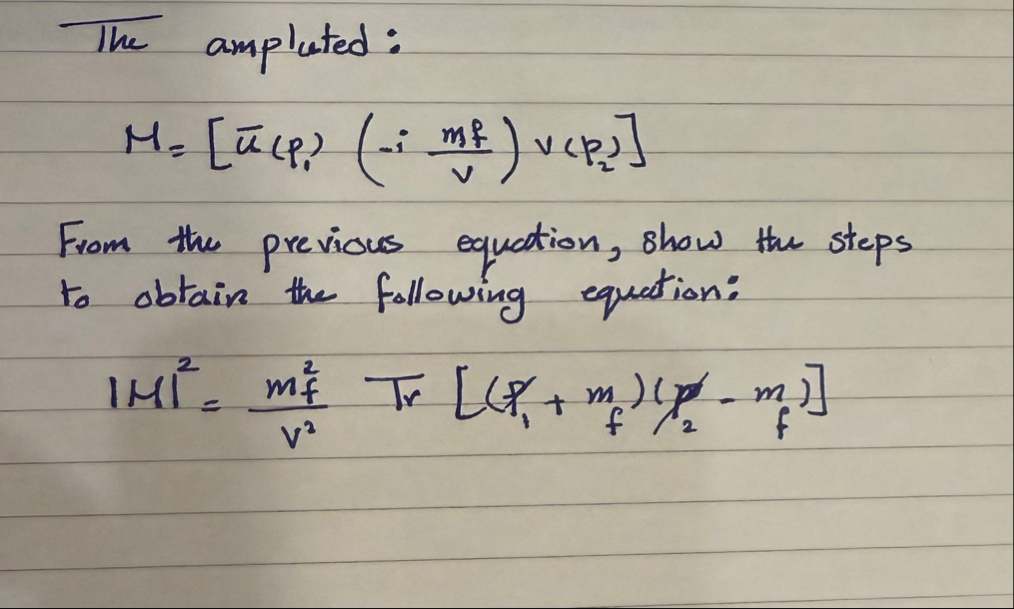 The ampluted:
M = [ū(p₁) (-i mf/v) v(p₂)]
From the previous equation, show the steps
to obtain the following equation:
|M|² = m²f/v² Tr [(p̸₁ + mf)(p̸₂ - mf)]